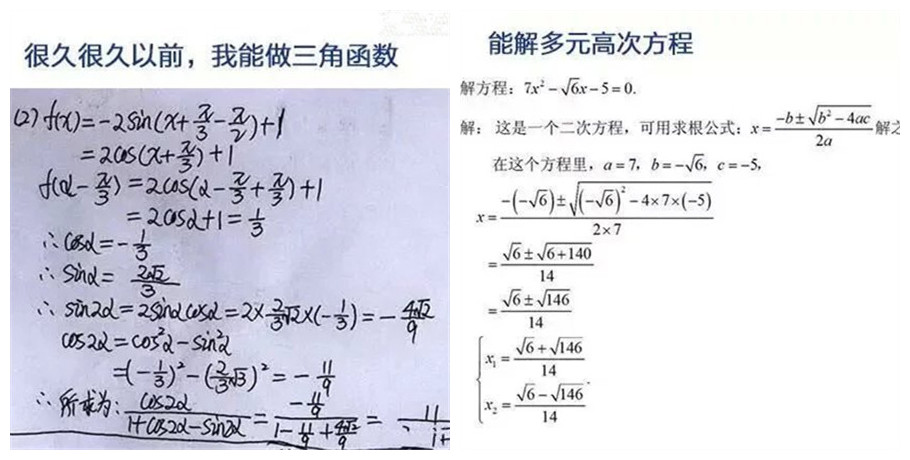 很久很久以前，我能做三角函数
(2) f(x)=-2sin(x+π/3-π/2)+1
=2cos(x+π/3)+1
f(α-π/3)=2cos(α-π/3+π/3)+1
=2cosα+1=1/3
∴cosα=-1/3
∴sinα=2√2/3
∴sin2α=2sinαcosα=2×2/3√2×(-1/3)=-4√2/9
cos2α=cos²α-sin²α
=(-1/3)²-(2/3√3)²=-11/9
∴所求为:cos2α/(1+cos2α-sin2α)=(-11/9)/(1-11/9+4√2/9)=
能解多元高次方程
解方程：7x²-√6x-5=0.
解：这是一个二次方程，可用求根公式：x=(-b±√(b²-4ac))/(2a) 解之
在这个方程里，a=7，b=-√6，c=-5，
x=(-(-√6)±√((-√6)²-4×7×(-5)))/(2×7)
=(√6±√(6+140))/14
=(√6±√146)/14
x₁=(√6+√146)/14
x₂=(√6-√146)/14.